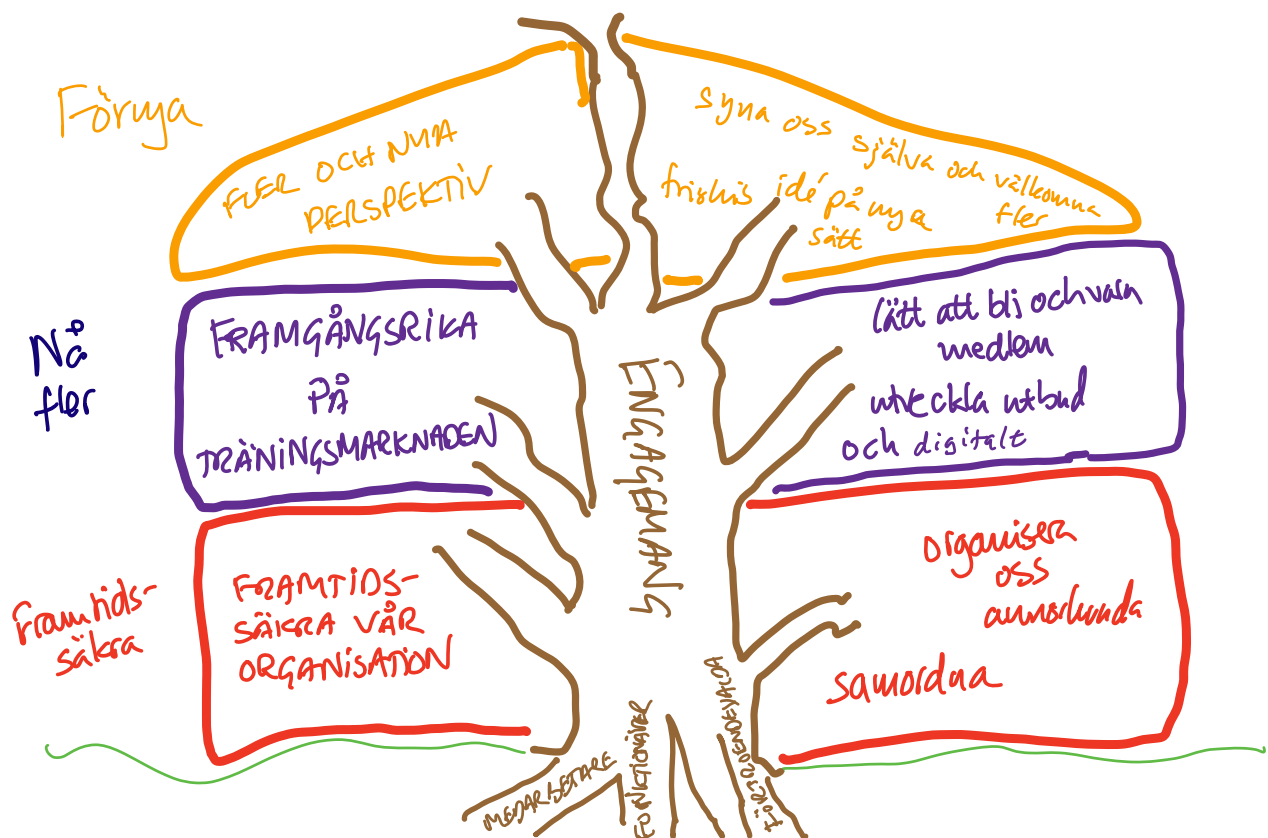 Förnya
FLER OCH NYA
PERSPEKTIV
syna oss själva och välkomna
fler
friskis idé på nya
sätt
Nå
fler
FRAMGÅNGSRIKA
PÅ
TRÄNINGSMARKNADEN
lätt att bli och vara
medlem
utveckla utbud
och digitalt
ENGAGEMANG
Framtids-
säkra
FRAMTIDS-
SÄKRA VÅR
ORGANISATION
organisera
oss
annorlunda
samordna
MEDARBETARE
FUNKTIONÄRER
FÖRTROENDEVALDA